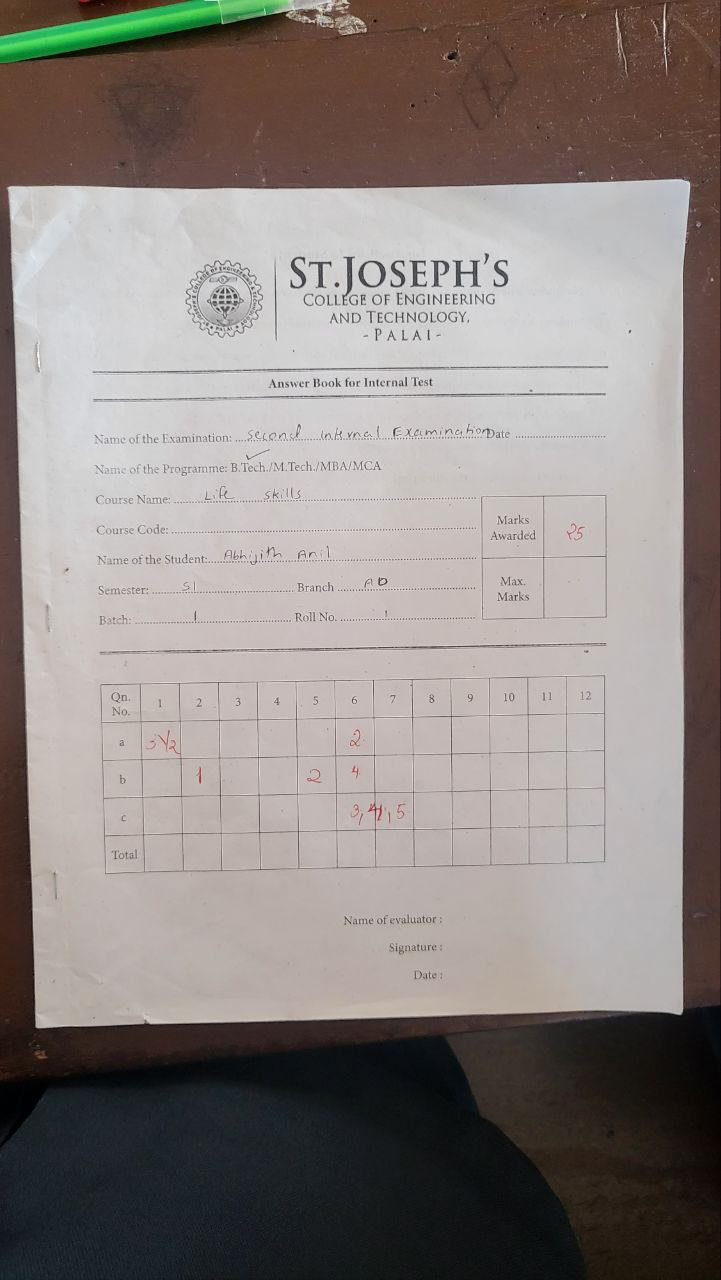 ST.JOSEPH'S
COLLEGE OF ENGINEERING
AND TECHNOLOGY,
- PALAI -
Answer Book for Internal Test
Name of the Examination: Second Internal Examination Date
Name of the Programme: B.Tech./M.Tech./MBA/MCA
Course Name: Life skills
Course Code:
Marks Awarded 25
Name of the Student: Abhijith Anil
Semester: S1 Branch AD
Max. Marks
Batch: 1 Roll No. 1
Qn. No. 1 2 3 4 5 6 7 8 9 10 11 12
a 3 1/2 2
b 1 2 4
c 3, 4 , 5
Total
Name of evaluator :
Signature :
Date :